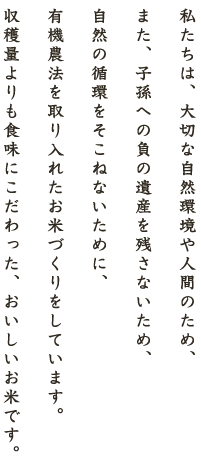 私たちは、大切な自然環境や人間のため、
また、子孫への負の遺産を残さないため、
自然の循環をそこねないために、
有機農法を取り入れたお米づくりをしています。
収穫量よりも食味にこだわった、おいしいお米です。